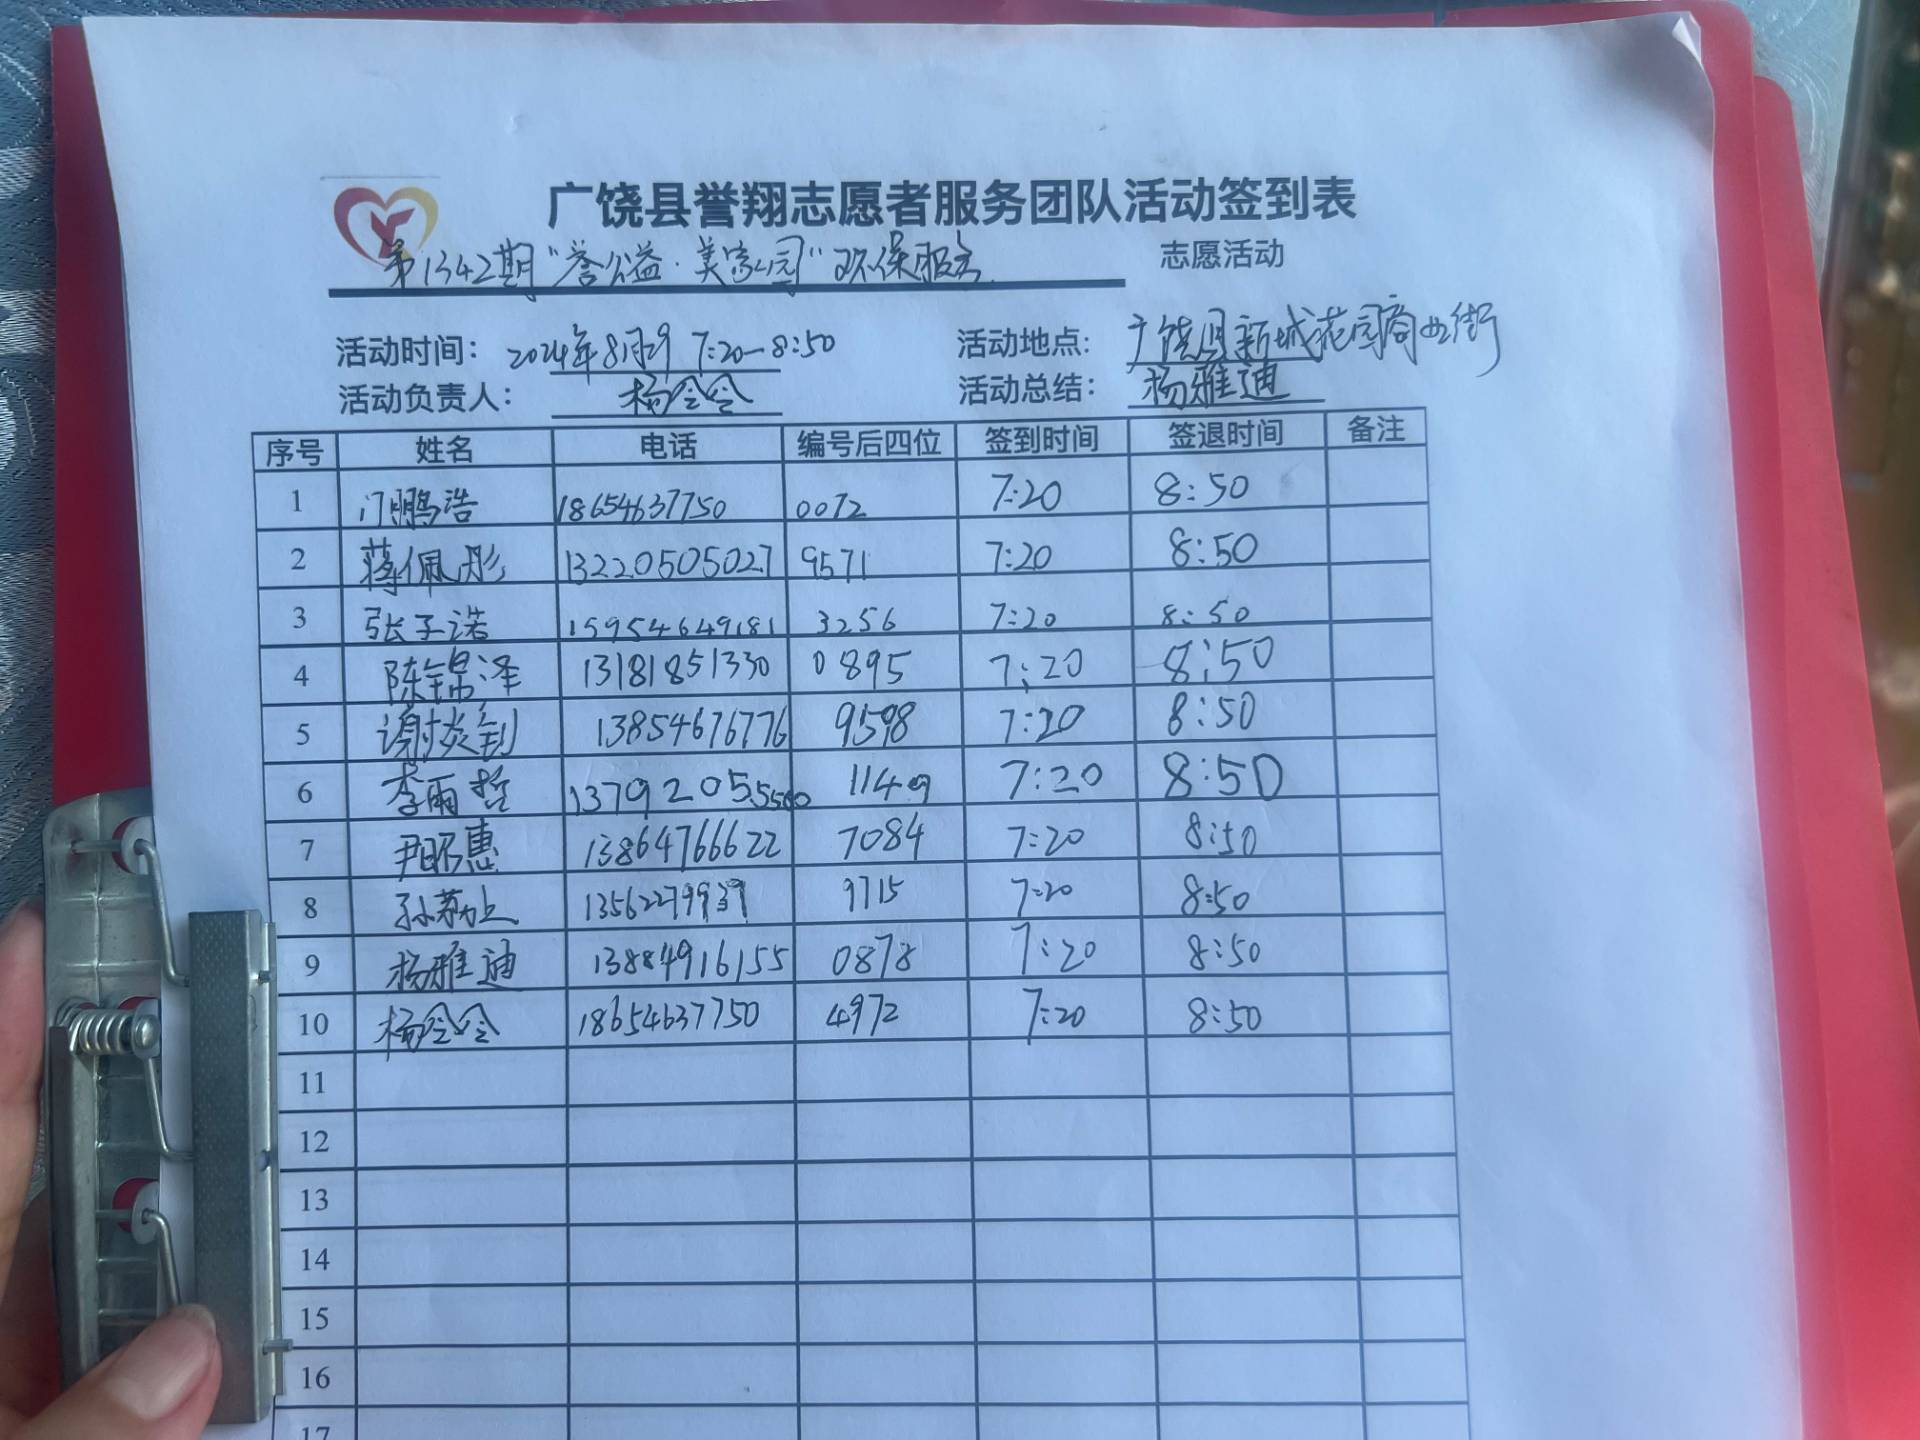 广饶县誉翔志愿者服务团队活动签到表
第1342期“誉公益·美家园”环保服务 志愿活动
活动时间： 2024年8月29 7:20-8:50 活动地点: 广饶县新城花园商业街
活动负责人： 杨令令 活动总结： 杨雅迪
序号 姓名 电话 编号后四位 签到时间 签退时间 备注
1 门鹏浩 18654637750 0072 7:20 8:50
2 蒋佩彤 13220505027 9571 7:20 8:50
3 张子诺 15954649181 3256 7:20 8:50
4 陈锦泽 13181851330 0895 7:20 8:50
5 谢炎钊 13854676776 9598 7:20 8:50
6 李雨哲 13792055560 1149 7:20 8:50
7 尹昭惠 13864766622 7084 7:20 8:50
8 孙 13562279939 9715 7:20 8:50
9 杨雅迪 13884916155 0878 7:20 8:50
10 杨令令 18654637750 4972 7:20 8:50
11
12
13
14
15
16
17